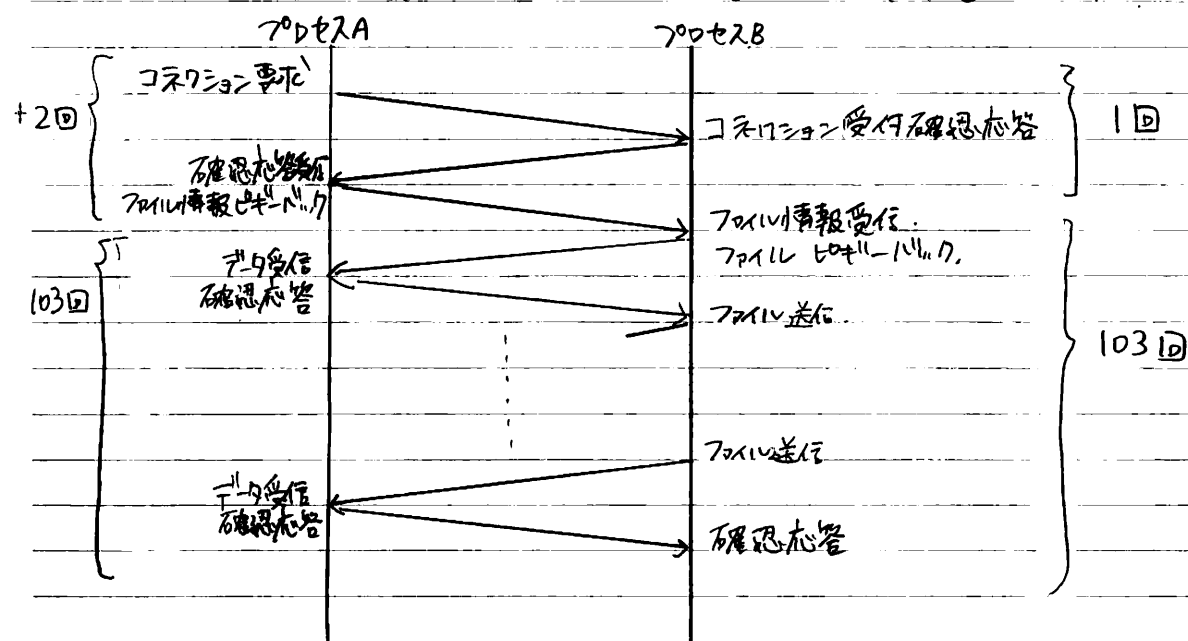 プロセスA
プロセスB
コネクション要求
+2回
コネクション受付確認応答
1回
確認応答受信
ファイル情報ピギーバック
ファイル情報受信.
ファイル ピギーバック.
データ受信
確認応答
103回
ファイル送信.
103回
ファイル送信
データ受信
確認応答
確認応答